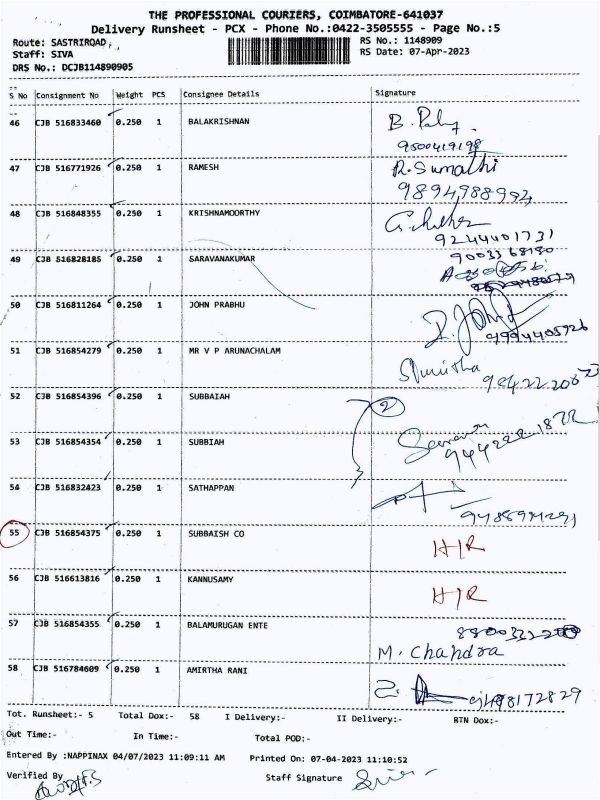 THE PROFESSIONAL COURIERS, COIMBATORE-641037
Delivery Runsheet - PCX - Phone No.:0422-3505555 - Page No.:5
Route: SASTRIROAD,
RS No.: 1148909
Staff: SIVA
RS Date: 07-Apr-2023
DRS No.: DCJB114890905
S No Consignment No Weight PCS Consignee Details Signature
46 CJB 516833460 0.250 1 BALAKRISHNAN
9500419198
47 CJB 516771926 0.250 1 RAMESH R.Sumathi
9894988994
48 CJB 516848355 0.250 1 KRISHNAMOORTHY
9244401731
49 CJB 516828185 0.250 1 SARAVANAKUMAR 9003368190
50 CJB 516811264 0.250 1 JOHN PRABHU
9994405926
51 CJB 516854279 0.250 1 MR V P ARUNACHALAM
52 CJB 516854396 0.250 1 SUBBAIAH 2
53 CJB 516854354 0.250 1 SUBBIAH
54 CJB 516832423 0.250 1 SATHAPPAN
55 CJB 516854375 0.250 1 SUBBAISH CO H/R
56 CJB 516613816 0.250 1 KANNUSAMY H/R
57 CJB 516854355 0.250 1 BALAMURUGAN ENTE
M. Chandra
58 CJB 516784609 0.250 1 AMIRTHA RANI
Tot. Runsheet:- 5 Total Dox:- 58 I Delivery:- II Delivery:- RTN Dox:-
Out Time:- In Time:- Total POD:-
Entered By :NAPPINAX 04/07/2023 11:09:11 AM Printed On: 07-04-2023 11:10:52
Verified By Staff Signature